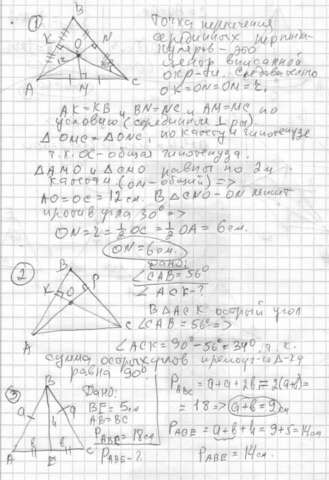 ①
B
K
N
O
12
A
M
C
Точка пересечения
серединных перпен-
дикуляров - это
центр вписанной
окр-ти. Следовательно
OK=ON=OM=r,
AK=KB и BN=NC и AM=MC по
условию (серединные ⊥ры)
△OMC=△ONC, по катету и гипотенузе
т.к. OC-общая гипотенуза.
△AMO и △CMO равны по 2м
катетам (ON-общий) =>
AO=OC=12см. В △CNO-ON лежит
против угла 30° =>
ON=r=½OC=½OA=6см.
ON=6см.
②
B
K
O
P
A
C
Дано:
∠CAB=56°
∠ACK-?
В △ACK острый угол
∠CAB=56° =>
∠ACK=90°-56°=34°, т.к.
сумма острых углов прямоуг-го △-га
равна 90°
③
B
a
a
4
A
b
E
b
C
Дано:
BE=5см
AB=BC
P_ABC=18см
P_ABE-?
P_ABC=a+a+2b=2(a+b)=
=18 => a+b=9см
P_ABE=a+b+4=9+5=14см
P_ABE=14см.